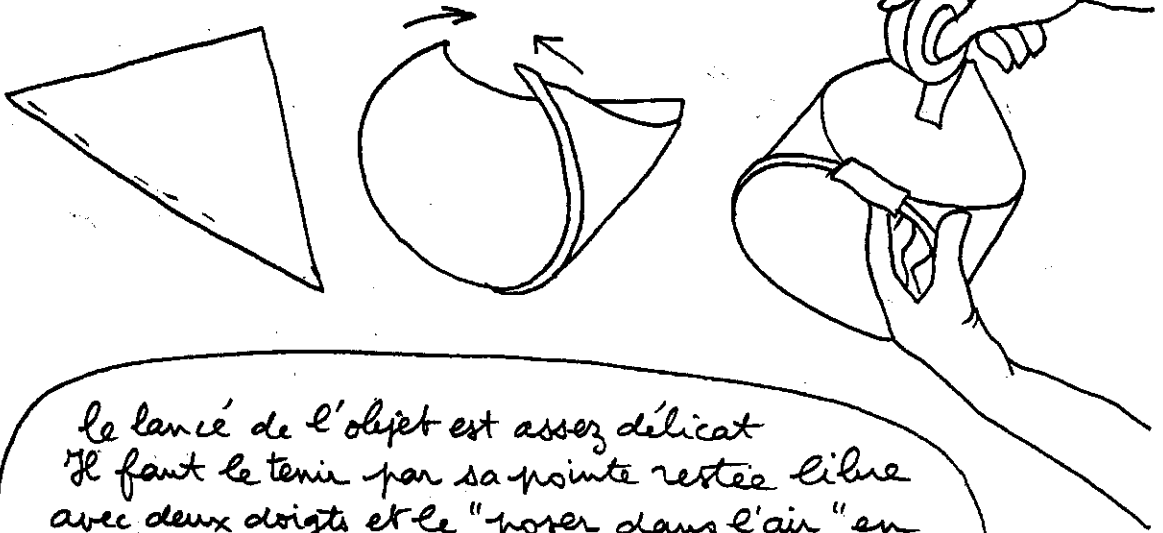 le lancé de l'objet est assez délicat
Il faut le tenir par sa pointe restée libre
avec deux doigts et le "poser dans l'air" en